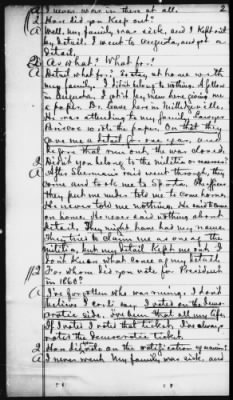 2
A I never was in there at all.
2 How did you keep out?
A Well, my family was sick, and I kept out
by detail. I went to Augusta, and got a
Detail.
2 As what? What for?
A Detail what for? To stay at home with
my family. I didn't belong to nothing. A fellow
in Augusta, I paid him, here gave me
a paper. He leave here in Milledgeville.
He was attending to my family. Lawyer
Briscoe wrote the paper. On that they
gave me a detail for one year, and
before that run out, the war closed.
2 Didn't you belong to the militia or reserves?
A After Sherman's raid went through, they
come and took me to Sparta. The officer
they put me under told me to come home.
He never told me nothing. He said come
on home. He never said nothing about
detail. They might have had my name.
They tried to claim me as one of the
militia, but my Detail kept me out. I
don't know what come of my detail.
2 For whom did you vote for President
in 1860?
A I've forgotten who was running. I don't
believe I could say. I voted on the demo-
cratic side. I've been that all my life.
If I voted I voted that ticket. I've always
voted the Democratic ticket.
2 How did you vote on the ratification of
A I never went. My family was sick, and